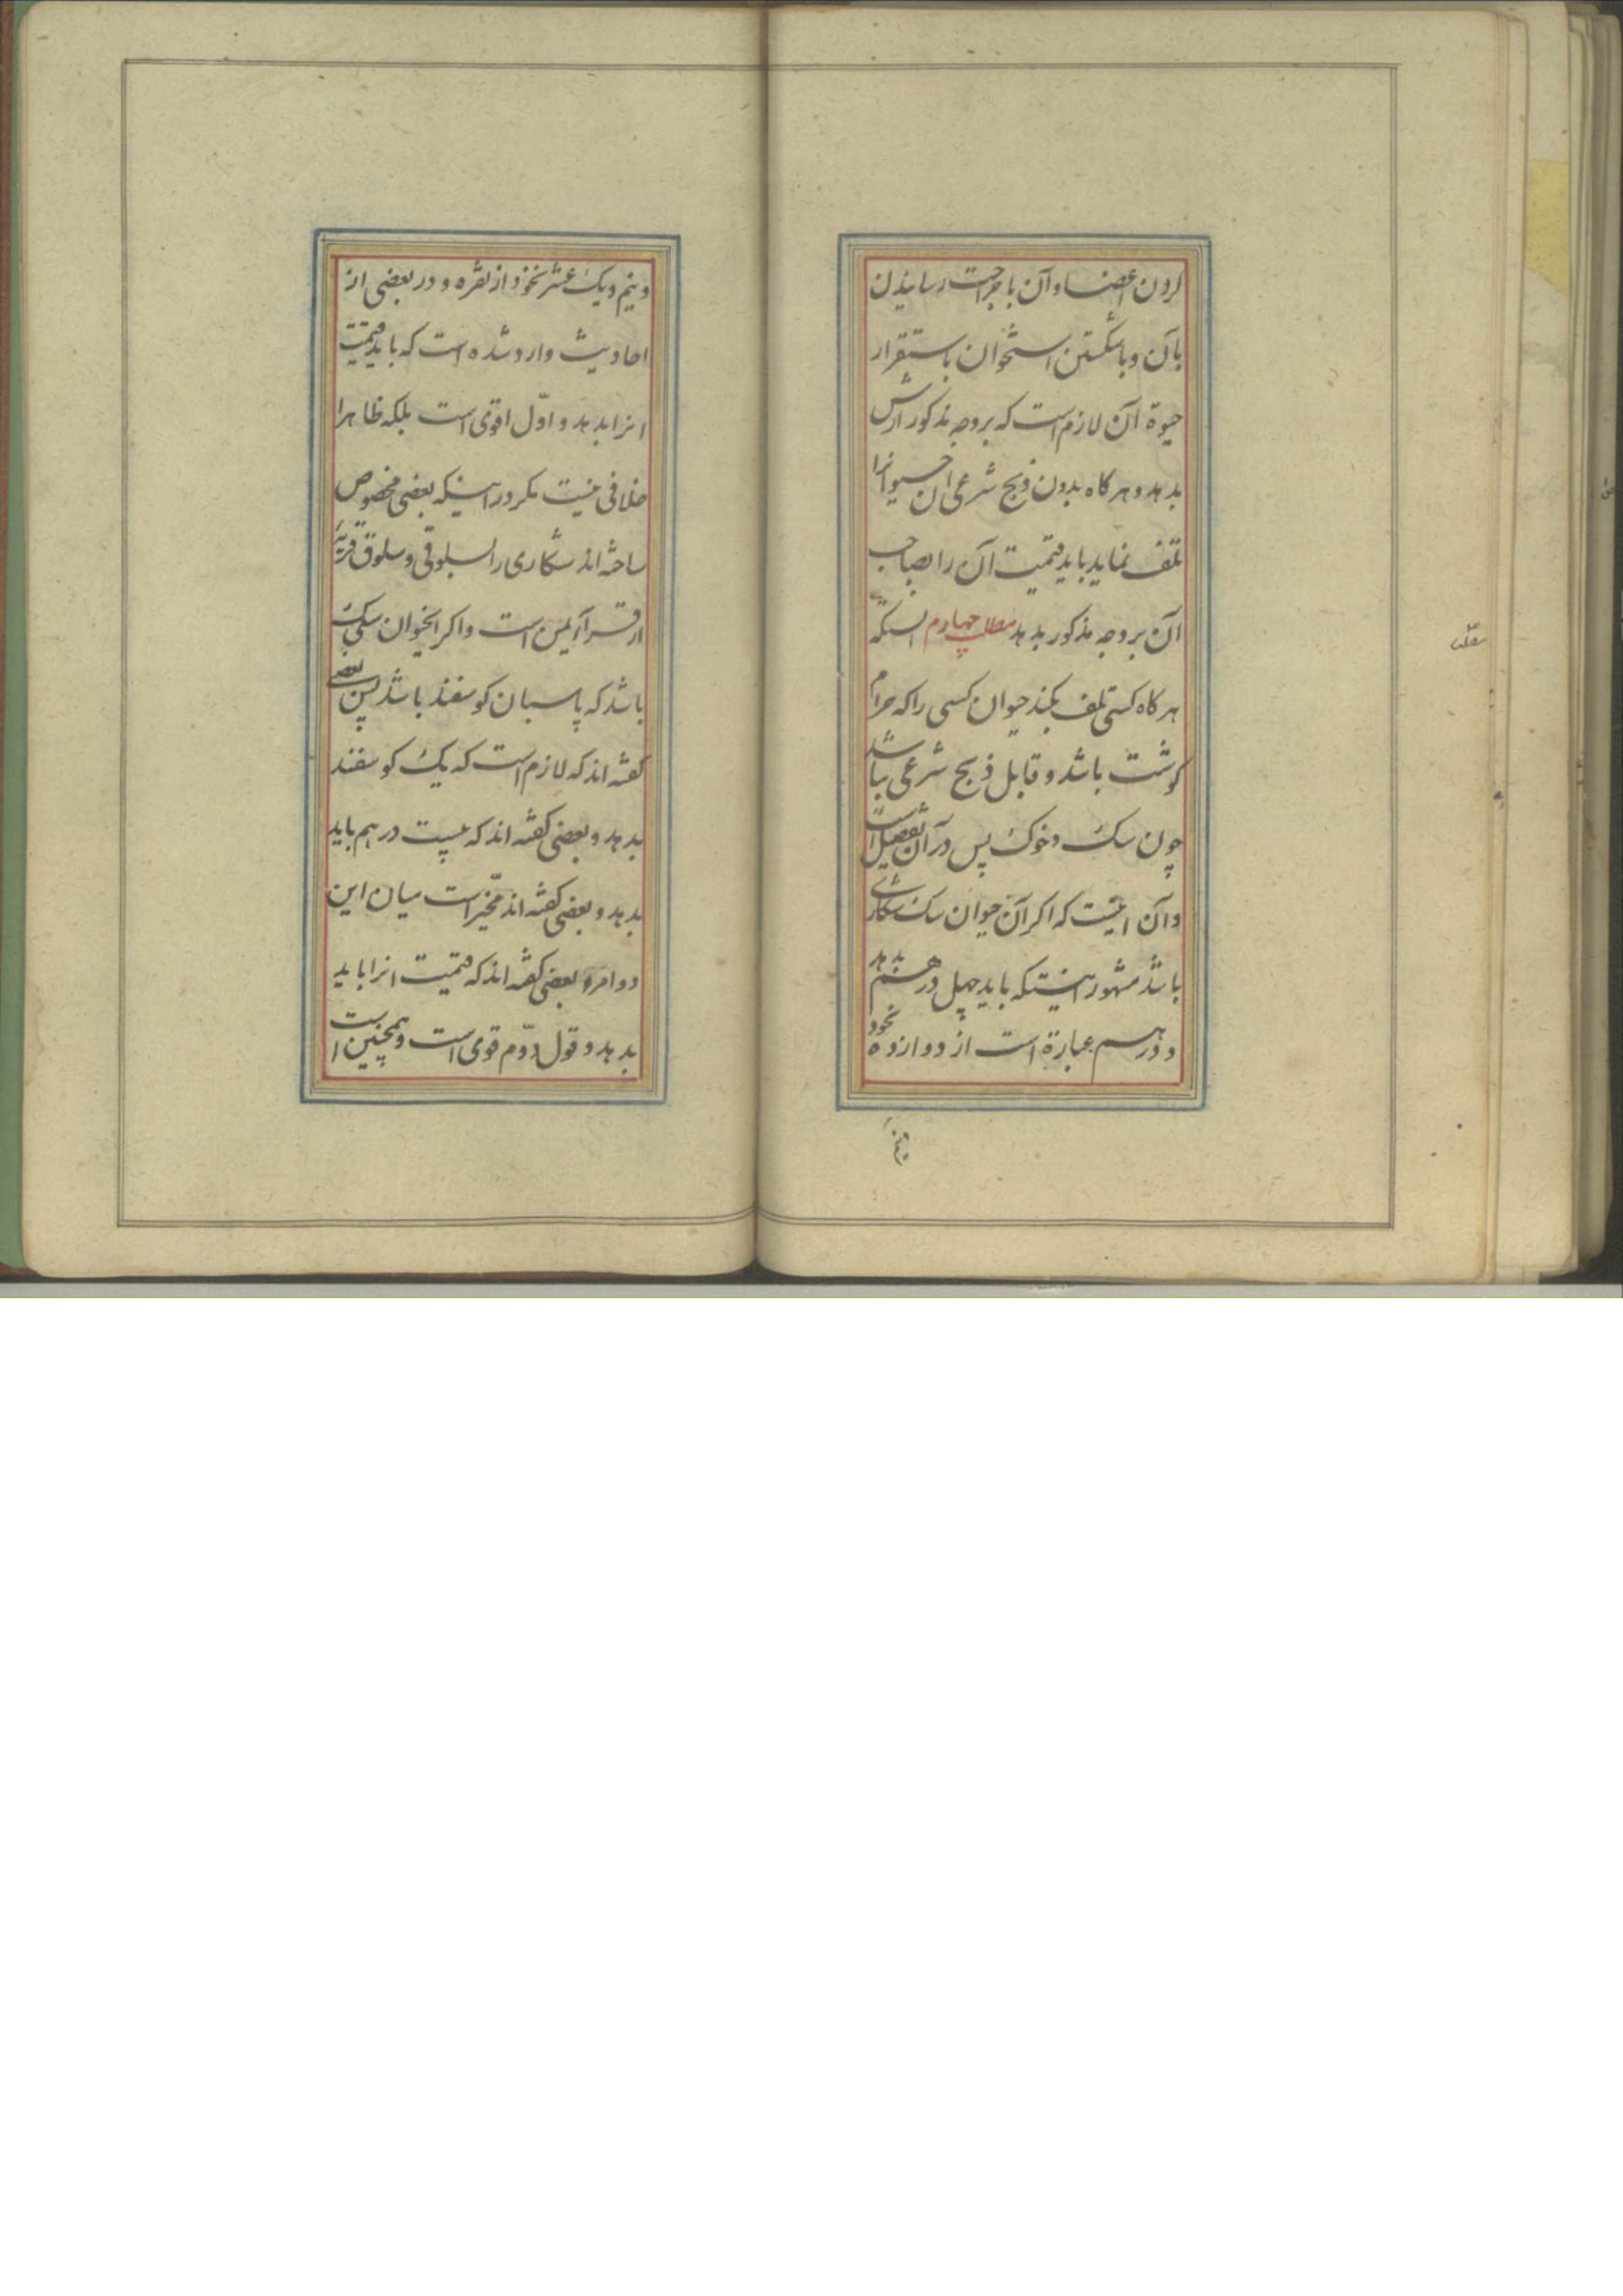 کردن اعضاء آن یا جراحت رسانیدن
بآن و یا شکستن استخوان با استقرار
حیوة آن لازم است که بروجه مذکور ارش
بدهد و هرکاه بدون ذبح شرعی ان حیوانرا
تلف نماید باید قیمت آن را بصاحب
آن بروجه مذکور بدهد مطلب چهارم انستکه
هرکاه کسی تلف بکند حیوان کسی را که حرام
کوشت باشد و قابل ذبح شرعی نباشد
چون سک و خوک پس در آن تفصیل است
و آن اینست که اکر آن حیوان سک شکاری
باشد مشهور اینستکه باید چهل درهم بدهد
و درهم عبارة است از دوازده نخود
و نیم
و نیم و یک عشر نخود از نقره و در بعضی از
احادیث وارد شده است که باید قیمت
انرا بدهد و اوّل اقوی است بلکه ظاهرا
خلافی نیست مکر در اینکه بعضی مخصوص
ساخته اند شکاری را بسلوقی و سلوق قریۀ
از قرآء یمن است و اکر انحیوان سکی
باشد که پاسبان کوسفند باشد پس بعضی
کفته اند که لازم است که یک کوسفند
بدهد و بعضی کفته اند که بیست درهم باید
بدهد و بعضی کفته اند مخیّر است میان این
دو امر و بعضی کفته اند که قیمت انرا باید
بدهد و قول دوّم قوی است و همچنین است